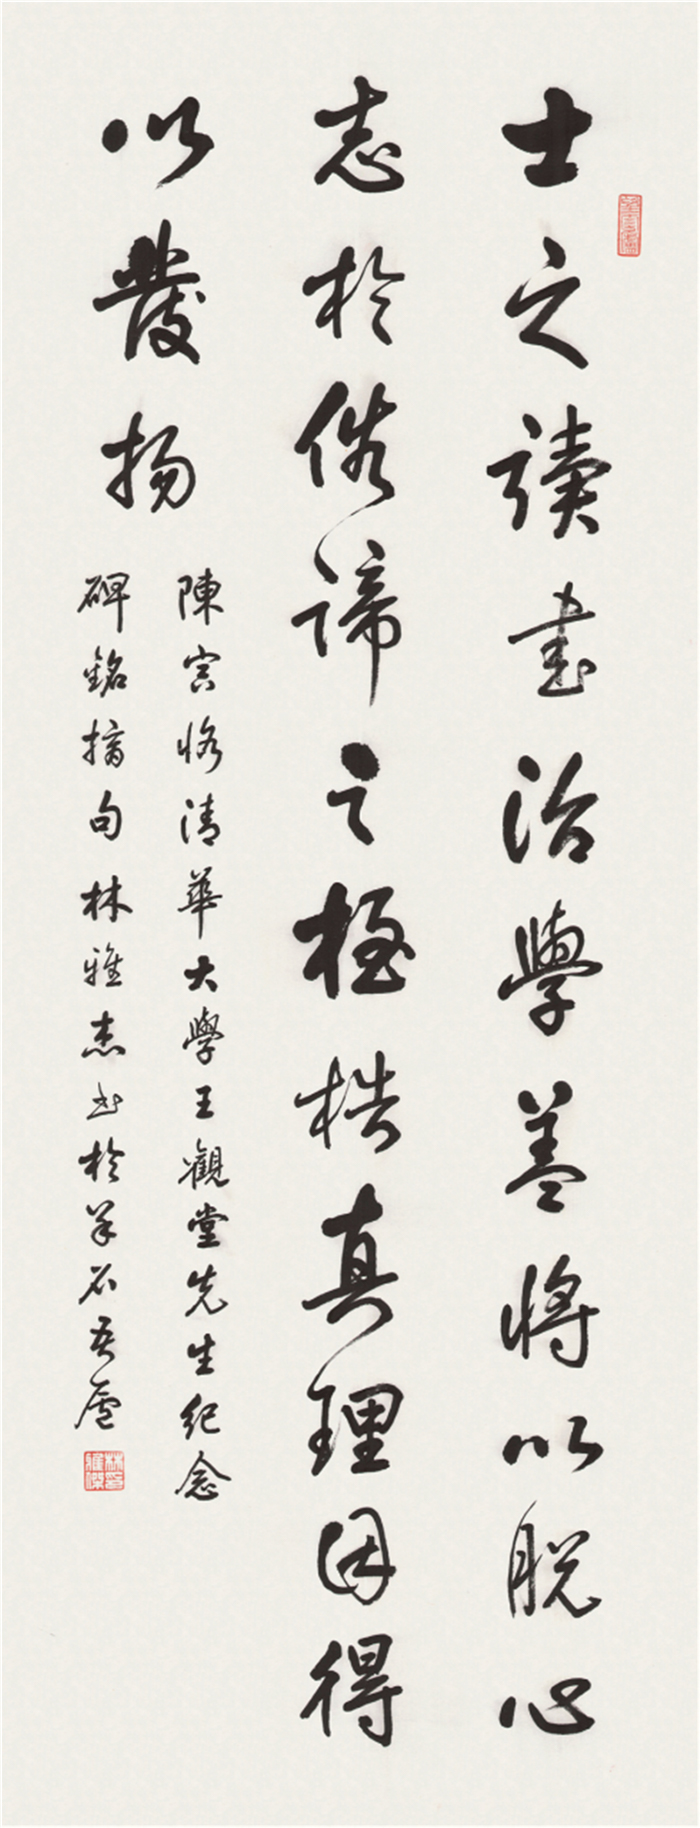 士之讀書治學蓋將以脫心
志於俗諦之桎梏真理因得
以發揚
陳寅恪清華大學王觀堂先生纪念
碑銘摘句林雅杰书於羊石吾廬
林雅傑印